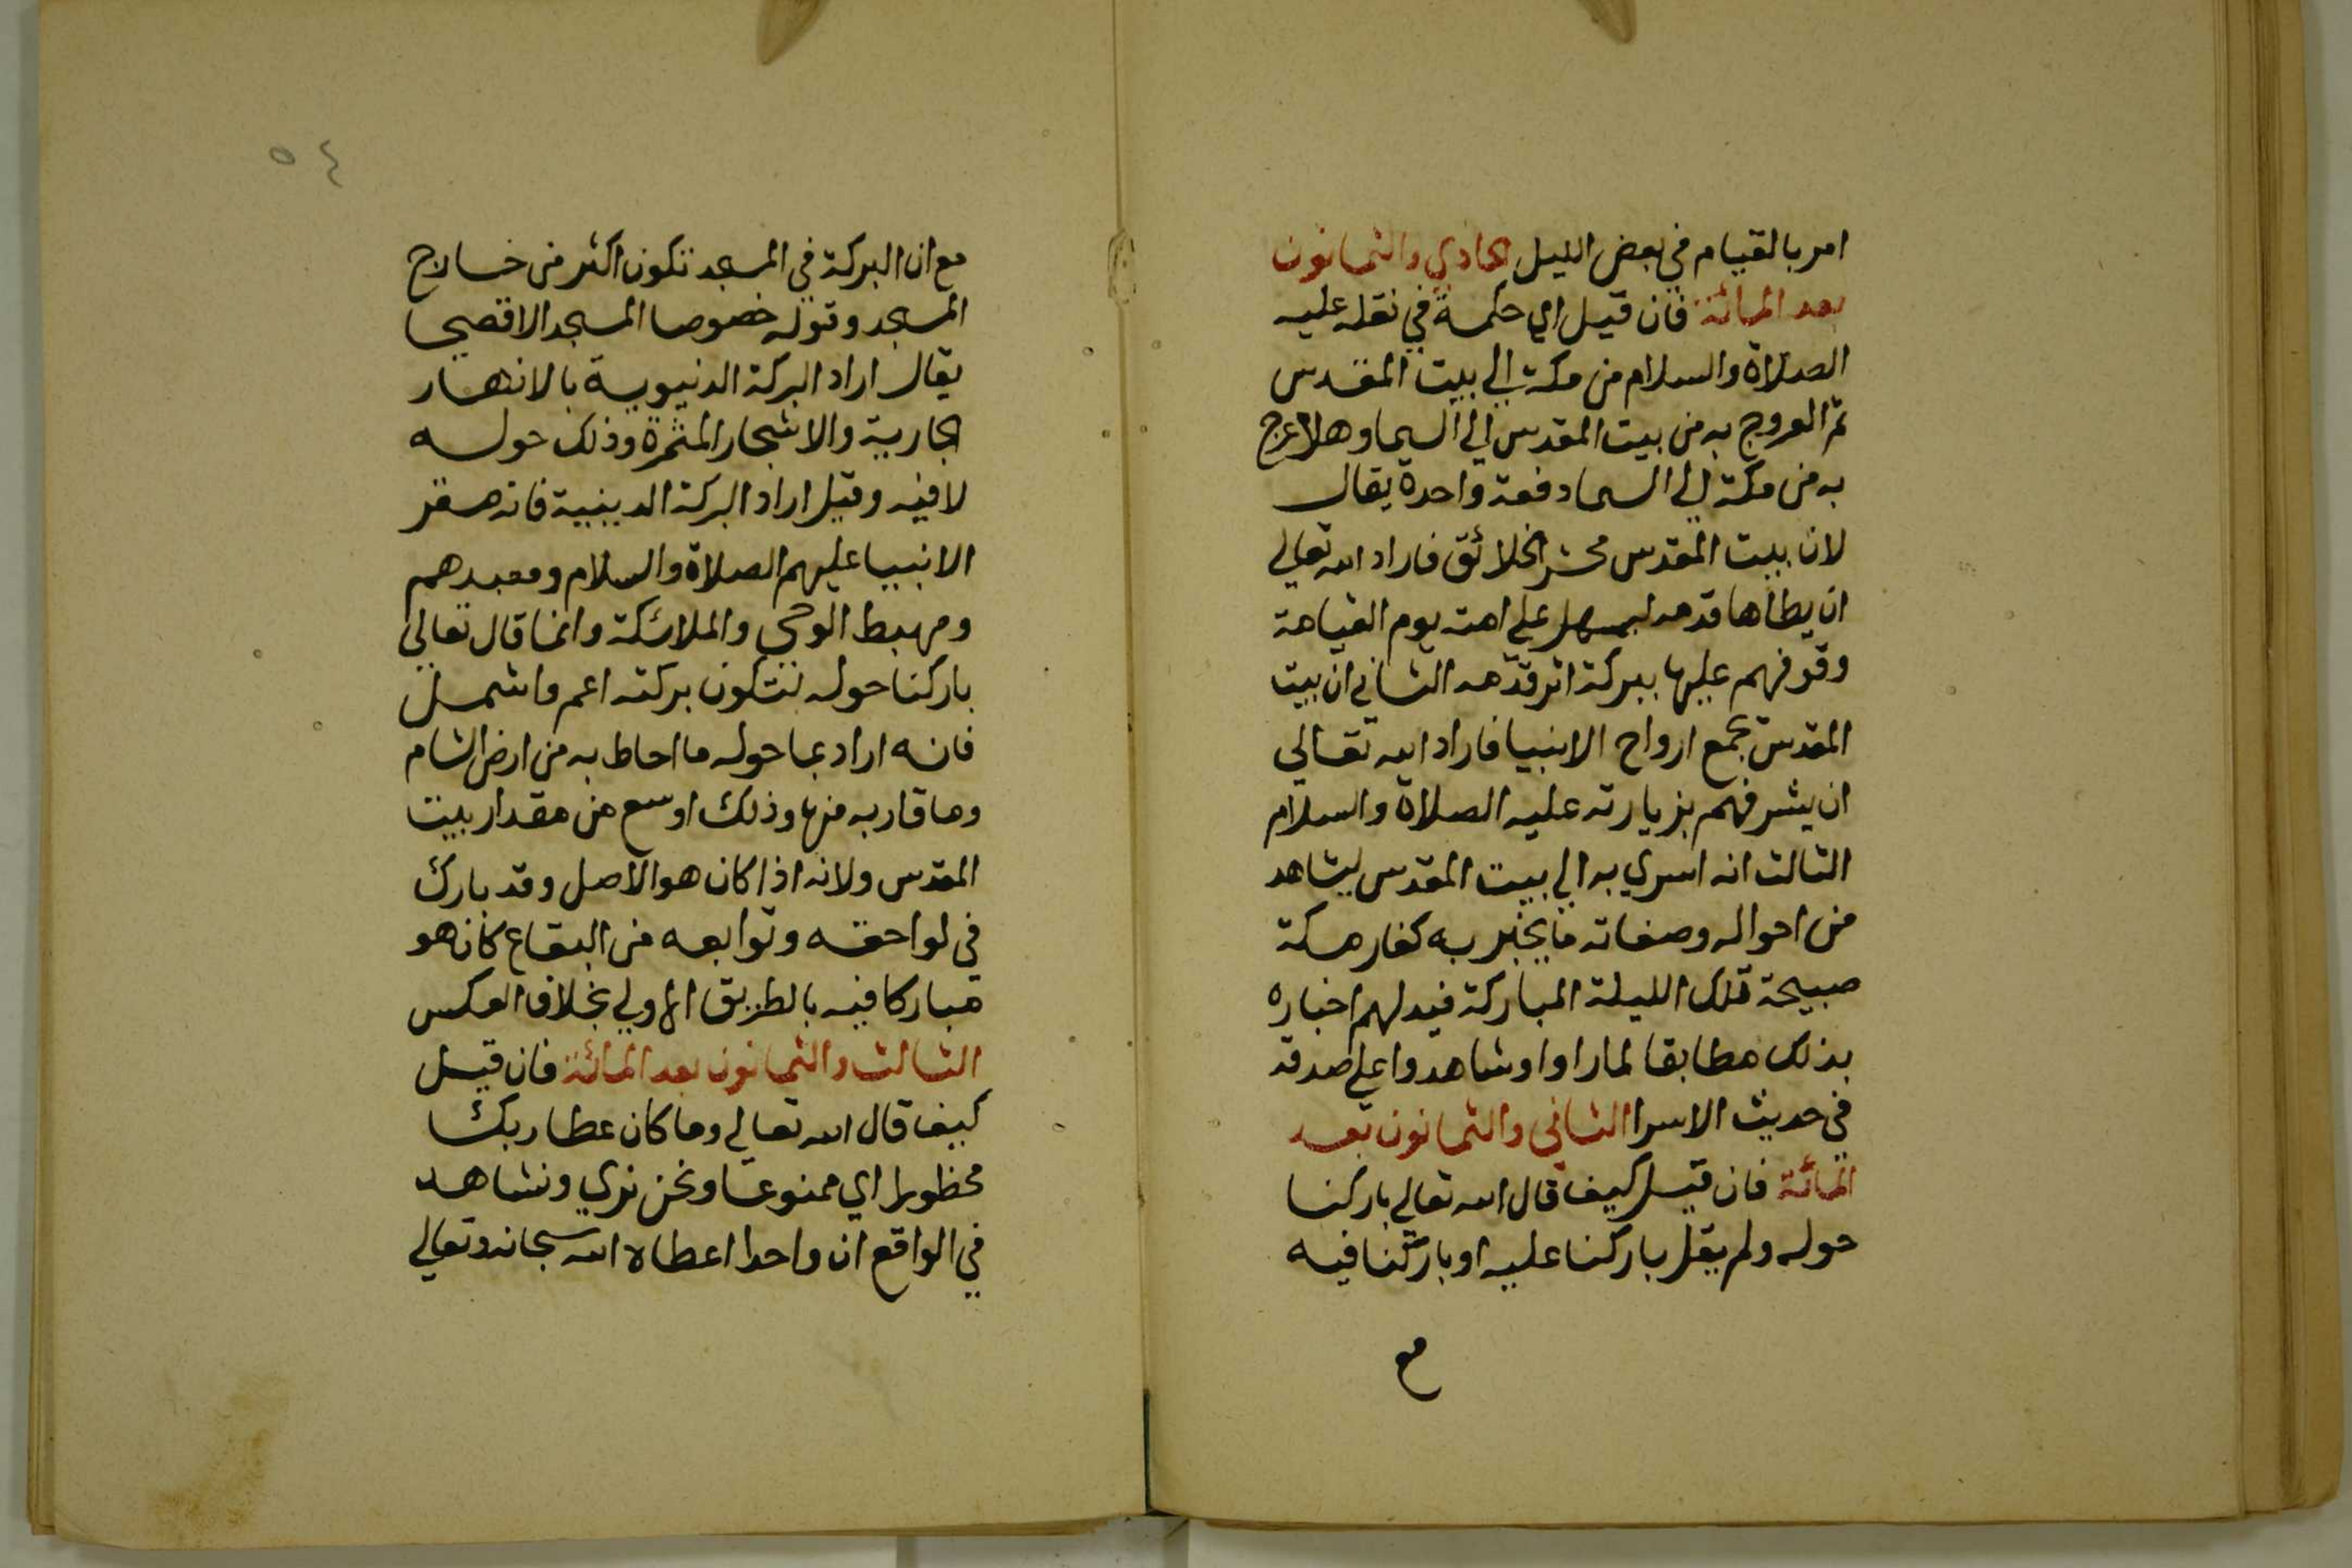 امر بالقيام في بعض الليل الحادي والثمانون
بعد المائة فان قيل اي حكمة في نقله عليه
الصلاة والسلام من مكة الي بيت المقدس
ثم العروج به من بيت المقدس الي السما وهلا عرج
به من مكة الي السما دفعة واحدة يقال
لان بيت المقدس محشر الخلائق فاراد الله تعالي
ان يطاها قدمه ليسهل علي امته يوم القيامة
وقوفهم عليها ببركة اثر قدمه الثاني ان بيت
المقدس مجمع ارواح الانبيا فاراد الله تعالي
ان يشرفهم بزيارته عليه الصلاة والسلام
الثالث انه اسري به الي بيت المقدس ليشاهد
من احواله وصفاته ما يخبر به كفار مكة
صبيحة تلك الليلة المباركة فيدلهم اخباره
بذلك مطابقا لما راوا وشاهدوا علي صدقه
في حديث الاسرا الثاني والثمانون بعد
المائة فان قيل كيف قال الله تعالي باركنا
حوله ولم يقل باركنا عليه او باركنا فيه
مع
٥٤
مع ان البركة في المسجد تكون اكثر من خارج
المسجد وقوله خصوصا المسجد الاقصي
يقال اراد البركة الدنيوية بالانهار
الجارية والاشجار المثمرة وذلك حوله
لا فيه وقيل اراد البركة الدينية فانه مقر
الانبيا عليهم الصلاة والسلام ومعبدهم
ومهبط الوحي والملائكة وانما قال تعالي
باركنا حوله لتكون بركته اعم واشمل
فانه اراد بما حوله ما احاط به من ارض الشام
وما قاربه منها وذلك اوسع من مقدار بيت
المقدس ولانه اذا كان هو الاصل وقد بارك
في لواحقه وتوابعه من البقاع كان هو
مباركا فيه بالطريق الاولي بخلاف العكس
الثالث والثمانون بعد المائة فان قيل
كيف قال الله تعالي وما كان عطا ربك
محظورا اي ممنوعا ونحن نري ونشاهد
في الواقع ان واحدا اعطاه الله سبحانه وتعالي